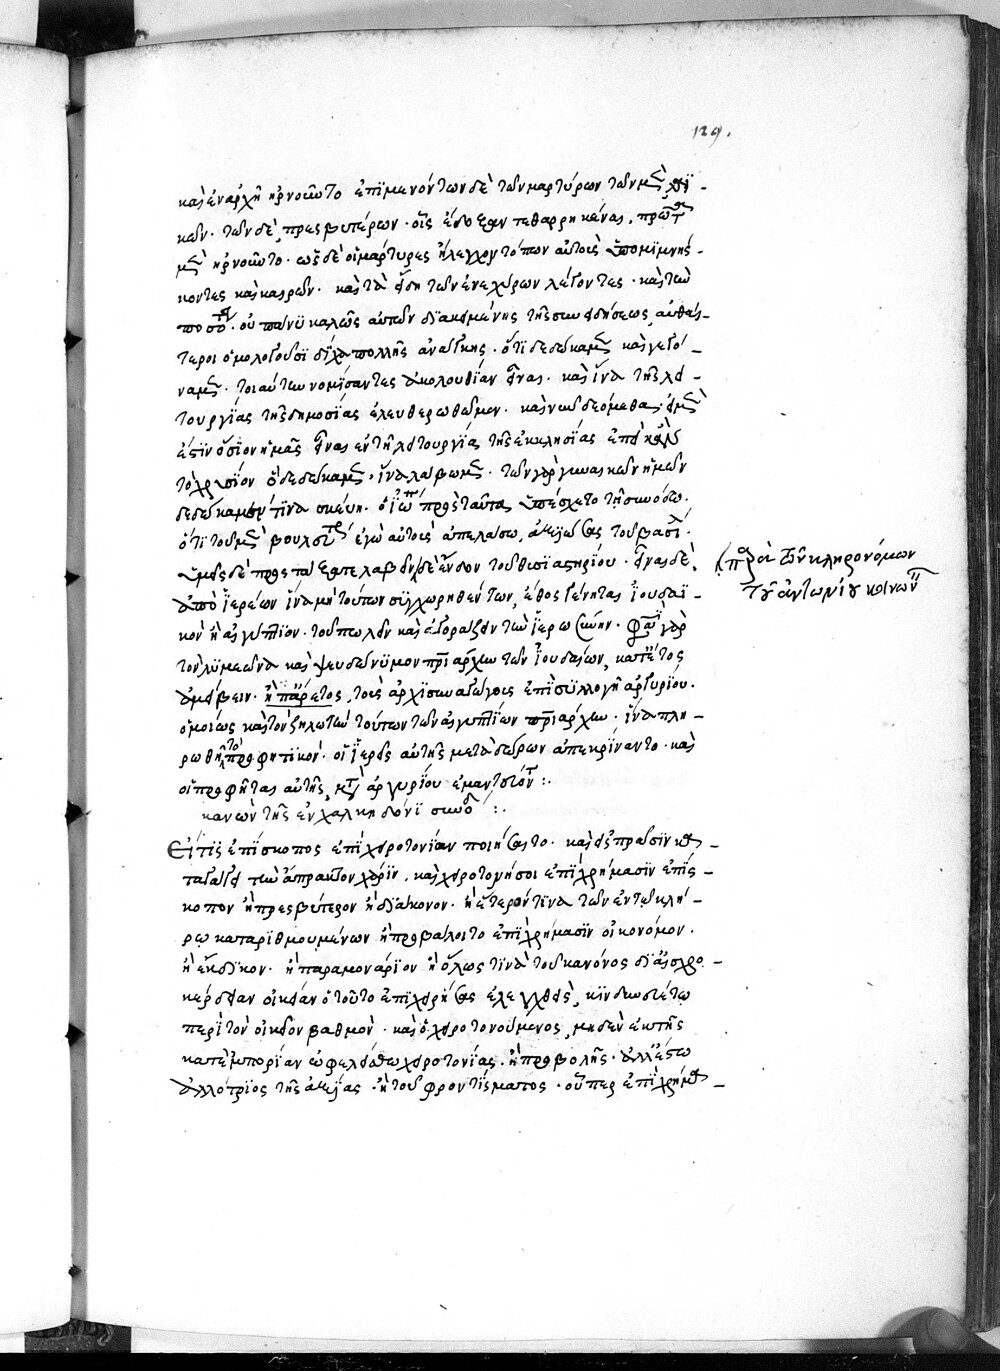 129.
καὶ ἐν ἀρχῇ ἠρνοῦντο ἐπϊμενόντων δὲ τῶν μαρτύρων τῶν μὲν λαϊ-
κῶν· τῶν δὲ πρεσβυτέρων· οἷς ἔδοξαν τεθαρρηκέναι, πρῶτον
μὲν ἠρνοῦντο· ὡς δὲ οἱ μάρτυρες ἤλεγχον τόπον αὐτοῖς ὑπομϊμνήσ-
κοντες καὶ καιρόν· καὶ τὰ εἴδη τῶν ἐνεχύρων λέγοντες· καὶ τὴν
ποσότητα· οὐ πάνϋ καλῶς αὐτῶν δϊακειμένης τῆς συνειδήσεως, αὐθαί-
τεροι ὁμολογοῦσϊ δίχα πολλῆς ἀνάγκης· ὅτϊ δεδώκαμεν καὶ γεγό-
ναμεν· τοιαύτην νομίσαντες ἀκολουθίαν εἶναι· καὶ ἵνα τῆς λει-
τουργίας τῆς δημοσίας ἐλευθερωθῶμεν· καὶ νῦν δεόμεθα· εἰ μὲν
ἐστϊν ὅσϊον ἡμᾶς εἶναι ἐν τῇ λειτουργίᾳ τῆς ἐκκλησίας ἐπεὶ κἂν
τὸ χρυσίον ὃ δεδώκαμεν, ἵνα λάβωμεν· τῶν γὰρ γυναικῶν ἡμῶν
δεδώκαμεν τϊνα σκεύη· ὁ ἰωάννης πρὸς ταῦτα ὑπέσχετο τῇ συνόδῳ·
ὅτϊ τοῦ μὲν βουλευτηρίου ἐγὼ αὐτοὺς ἀπελάσω, ἀξϊώσας τοῦ βασϊλέα·
ὑμεῖς δὲ προστάξατε λαβεῖν
ἀπὸ ἱερέων ἵνα μὴ τούτων συγχωρηθέντων, ἔθος γένηται ἰουδαϊ-
κὸν ἢ αἰγύπτϊον· τοῦ πωλεῖν καὶ ἀγοράζειν τὴν ἱερωσύνην· φασὶ γὰρ
τὸν λυμεῶνα καὶ ψευδώνυμον πατρϊάρχην τῶν ἰουδαίων, κατ' ἔτος
ἀμείβειν· ἢ παρ' ἔτος, τοὺς ἀρχϊσυναγώγους ἐπὶ συλλογῇ ἀργυρίου·
ὁμοίως καὶ τὸν ζηλωτὴν τούτων τῶν αἰγυπτίων πατρϊάρχην· ἵνα πλη-
ρωθῇ τὸ προφητϊκόν· οἱ ἱερεῖς αὐτῆς μετὰ δώρων ἀπεκρίναντο· καὶ
οἱ προφῆται αὐτῆς, μετὰ ἀργυρίου ἐμαντεύοντο :.
κανὼν τῆς ἐν χαλκηδόνϊ συνόδου :.
Εἴ τϊς ἐπίσκοπος ἐπὶ χειροτονίαν ποιήσαιτο· καὶ εἰς πρᾶσϊν κα-
ταγάγει τὴν ἄπρακτον χάρϊν, καὶ χειροτονήσοι ἐπὶ χρήμασϊν ἐπίσ-
κοπον ἢ πρεσβύτερον ἢ δϊάκονον· ἢ ἕτερόν τϊνα τῶν ἐν τῷ κλή-
ρῳ καταρϊθμουμένων ἢ προβάλοιτο ἐπὶ χρήμασϊν οἰκονόμον·
ἢ ἔκδϊκον· ἢ παραμονάρϊον ἢ ὅλως τϊνὰ τοῦ κανόνος δϊ' αἰσχρο-
κέρδειαν οἰκείαν ὁ τοῦτο ἐπϊχειρήσας ἐλεγχθεὶς, κϊνδυνευέτω
περὶ τὸν οἰκεῖον βαθμόν· καὶ ὁ χειροτονούμενος, μηδὲν ἐκ τῆς
κατ' ἐμπορίαν ὠφελείσθω χειροτονίας· ἢ προβολῆς· ἀλλ' ἔστω
ἀλλότρϊος τῆς ἀξίας· ἢ τοῦ φροντίσματος· οὗπερ ἐπὶ χρήμα-
παρὰ τῶν κληρονόμων
τοῦ ἀντωνίου κοινων